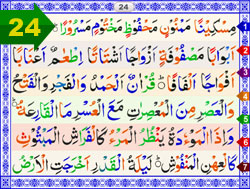 24
24
مِسْكِيْنًا مَمْنُوْنٍ مَحْفُوْظٍ مَخْتُوْمٍ مَسْرُوْرًا 1
اَبْوَابًا مَصْفُوْفَةٍ اَزْوَاجًا اَشْتَاتًا اِطْعٰمٌ اَعْنَابًا 2
اَفْوَاجًا اَلْفَافًا قُرْاٰنُ الْحَمْدُ وَالْفَجْرِ وَالْفَتْحُ 3
وَالْعَصْرِ مِنَ الْمُعْصِرٰتِ مَعَ الْعُسْرِ مَا الْقَارِعَةُ 4
وَاِذَا الْمَوْءٗدَةُ يَنْظُرُ الْمَرْءُ كَالْفَرَاشِ الْمَبْثُوْثِ
كَالْعِهْنِ الْمَنْفُوْشِ لَيْلَةُ الْقَدْرِ اَخْرَجَتِ الْاَرْضُ